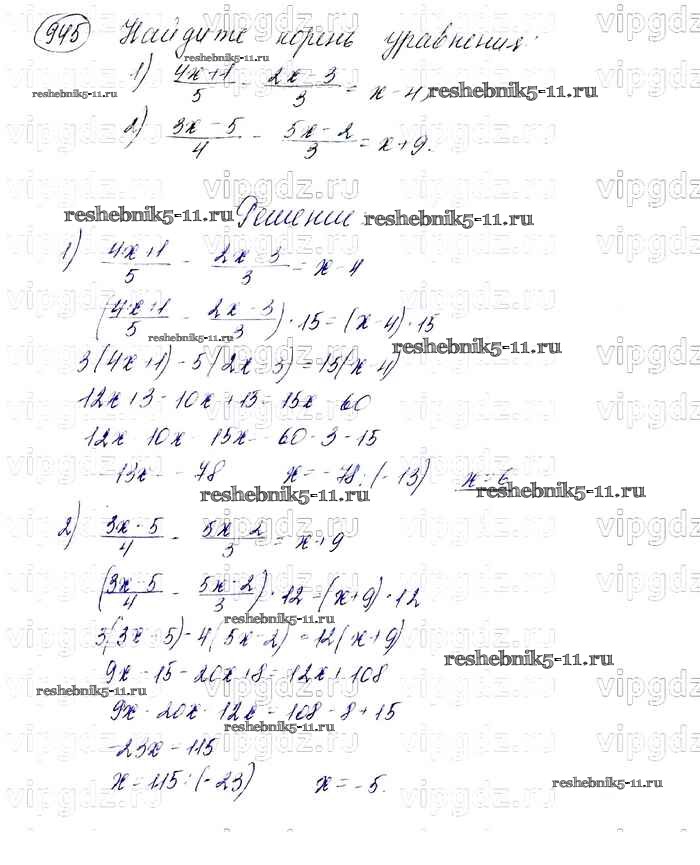 945 Найдите корень уравнения:
1) (4x+1)/5 - (2x-3)/3 = x-4;
2) (3x-5)/4 - (5x-2)/3 = x+9.
Решение
1) (4x+1)/5 - (2x-3)/3 = x-4
((4x+1)/5 - (2x-3)/3)·15=(x-4)·15
3(4x+1)-5(2x-3)=15(x-4)
12x+3-10x+15=15x-60
12x-10x-15x=-60-3-15
-13x=-78 x=-78:(-13) x=6
2) (3x-5)/4 - (5x-2)/3 = x+9
((3x-5)/4 - (5x-2)/3)·12=(x+9)·12
3(3x-5)-4(5x-2)=12(x+9)
9x-15-20x+8=12x+108
9x-20x-12x=108-8+15
-23x=115
x=115:(-23) x=-5.
reshebnik5-11.ru
vipgdz.ru